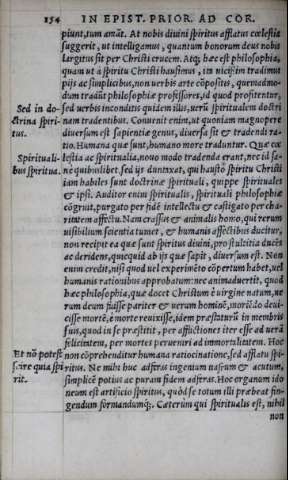 154 IN EPIST. PRIOR. AD COR.
piunt, tum amāt. At nobis diuini spiritus afflatus cœlestia
suggerit, ut intelligamus, quantum bonorum deus nobis
largitus sit per Christi crucem. Atq; hæc est philosophia,
quam ut à spiritu Christi hausimus, ita uicißim tradimus
pijs ac simplicibus, non uerbis arte cōpositis, quemadmo-
dum tradūt philosophiæ professores, id quod profitentur,
Sed in do- sed uerbis inconditis quidem illis, uerū spiritualem doctri
ctrina spiri- nam tradentibus. Conuenit enim, ut quoniam magnopere
tus. diuersum est sapientiæ genus, diuersa sit & tradendi ra-
tio. Humana quæ sunt, humano more traduntur. Quæ cœ
Spirituali- lestia ac spiritualia, nouo modo tradenda erant, nec id sa-
bus spiritua. nè quibuslibet, sed ijs duntxat, qui haustò spiritu Christi
iam habiles sunt doctrinæ spirituali, quippe spirituales
& ipsi. Auditor enim spiritualis, spirituali philosophiæ
cōgruit, purgato per fidē intellectu & castigato per cha-
ritatem affectu. Nam crassus & animalis homo, qui rerum
uisibilium scientia tumet, & humanis affectibus ducitur,
non recipit ea quæ sunt spiritus diuini, pro stultitia ducēs
ac deridens, quicquid ab ijs quæ sapit, diuersum est. Non
enim credit, nisi quod uel experimēto cōpertum habet, uel
humanis rationibus approbatum: nec animaduertit, quod
hæc philosophia, quæ docet Christum è uirgine natum, ue
rum deum fuisse pariter & uerum hominē, moriēdo deui-
cisse mortē, è morte reuixisse, idem præstaturū in membris
suis, quod in se præstitit, per afflictiones iter esse ad uerā
felicitatem, per mortes perueniri ad immortalitatem. Hoc
Et nō potest non cōprehenditur humana ratiocinatione, sed afflatu spi-
scire quia spi ritus. Ne mihi huc adferas ingenium uafrum & acutum,
rit. simplicē potius ac puram fidem adferas. Hoc organum ido
neum est artificio spiritus, quòd se totum illi præbeat fin-
gendum formandumq;. Cæterùm qui spiritualis est, nihil
non